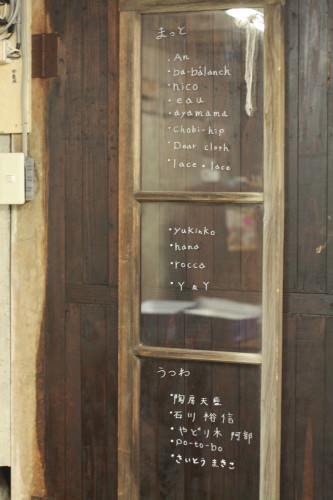 まっと
・An
・ba-balanch
・nico
・eau
・ayamama
・Chobi-hip
・Dear cloth
・lace・lace
・yukinko
・hana
・rocca
・Y&Y
うつわ
・陶房天藍
・石川裕信
・やどり木 阿部
・po-to-bo
・さいとう まきこ